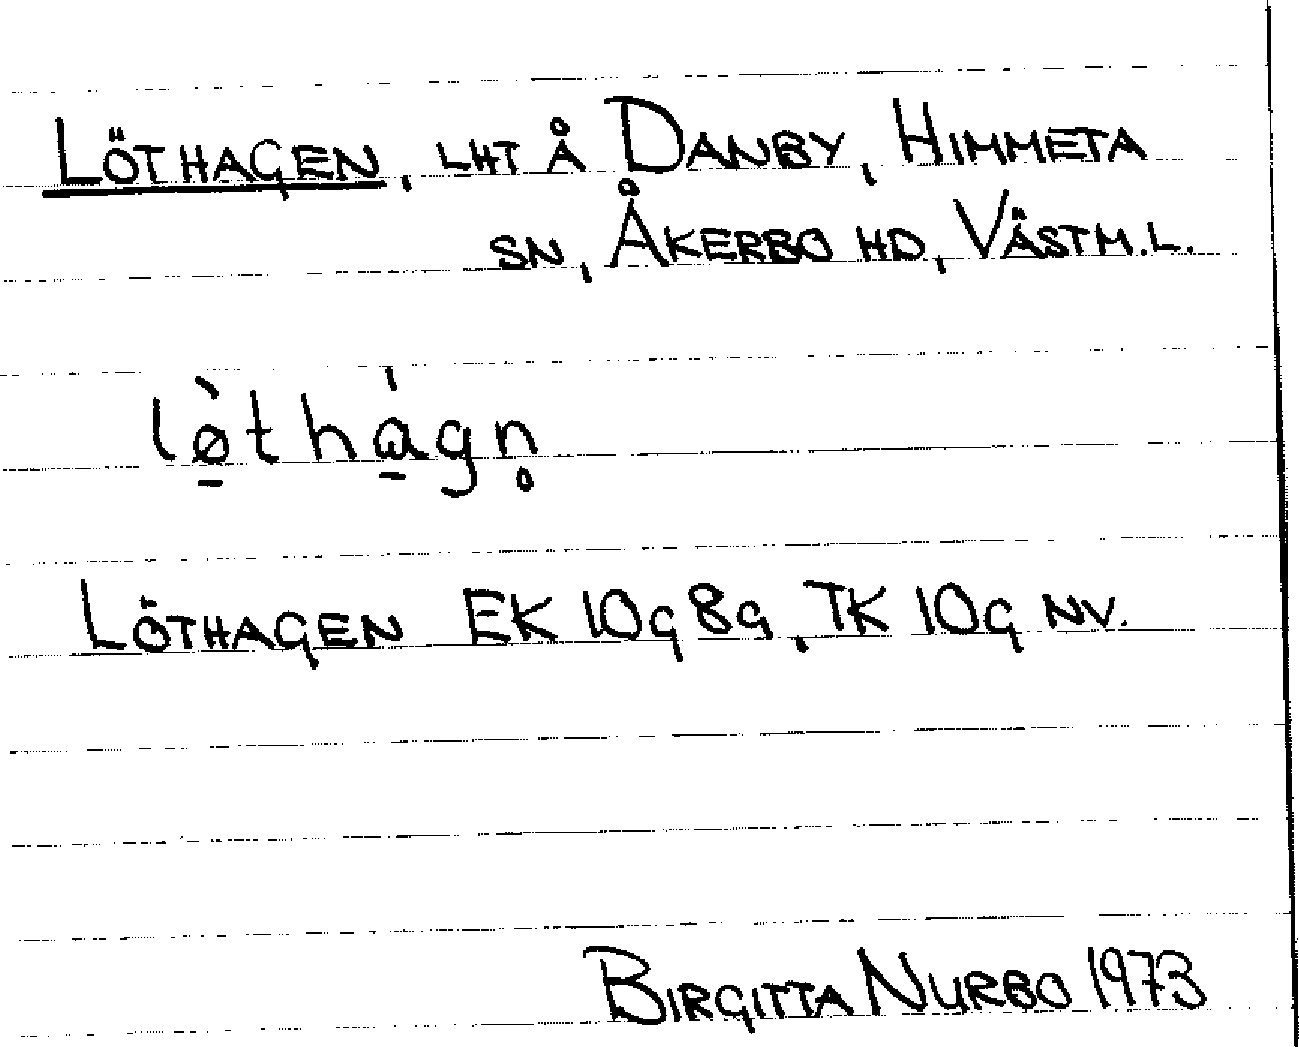 LÖTHAGEN, LHT Å DANBY, HIMMETA
SN, ÅKERBO HD, VÄSTM.L.
lø̱̀thá̱gn̥
LÖTHAGEN EK 10G 8G, TK 10G NV.
BIRGITTA NURBO 1973